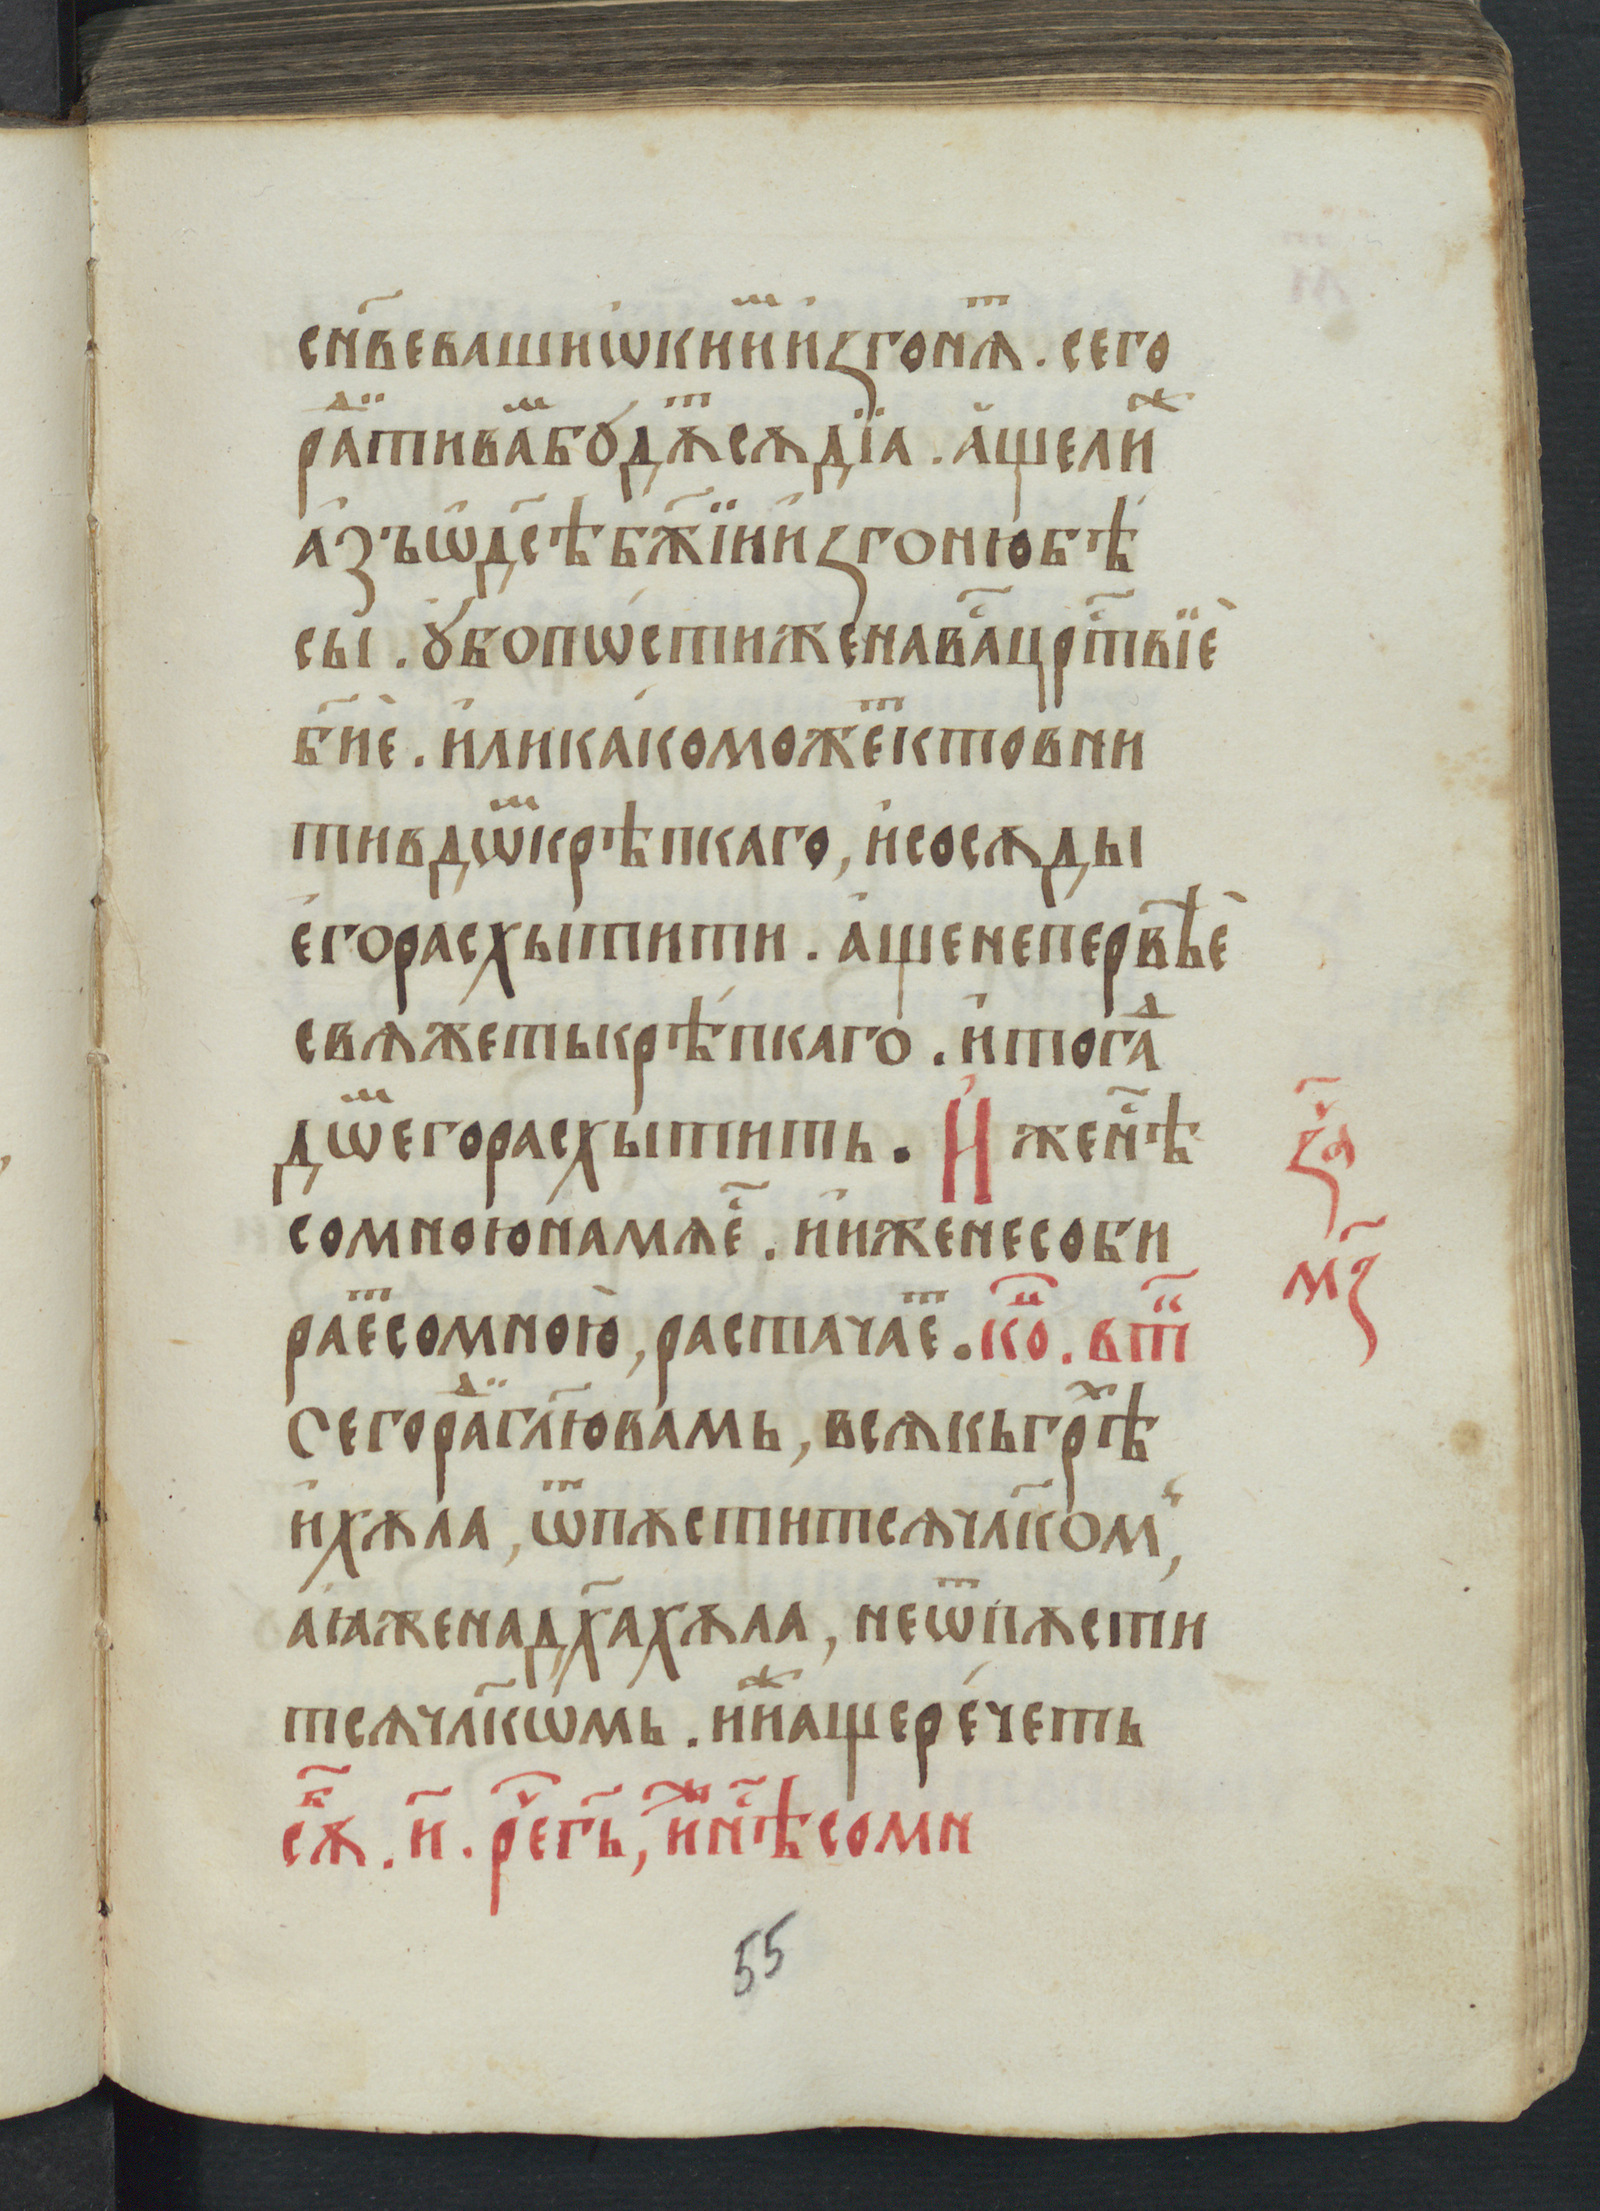 сн҃веваши ѡ ки́ⷨ и҆ꙁгонѧⷮ. сего
раⷣⷤти ваⷨ бꙋ́дѫⷮ сѫдїа. а҆щелиⷤ
а҆зъ ѡ҆ дс҃ѣ бж҃їи и҆ꙁгоню бѣ́
сы. ꙋ҆бо пѡ́стиже на ва́ⷭ црⷭ҇твїѐ
бж҃иѐ. и҆ли ка́ко можеⷮ кто вни
ти в доⷨ крѣпкаго, и҆ сосѫды
е҆го расхытити. а҆ще не первѣѐ
свѧжеть крѣ́пкаго. и҆ тогаⷣ
доⷨ его расхытить. И҆же нⷭ҇ѣ
со мною на мѧ еⷭ҇. и҆ иже не соби
раеⷮ со мною̀, растачаеⷮ. коⷰ҇. втⷪ҇
Сего раⷣи гл҃ю вамь, всѧкь грⷯѣ
и҆ хѫла, ѿпѫститсѧ чл҃ком,
а ꙗже на дх҃а хѫла, не ѿпѫсти
тсѧ чл҃кѡмь. и҆ иⷤ аще рече́ть
сѫⷠ҇. и҃. реⷱ҇ гь҃, иⷤ нⷭ҇ѣ со мн
ꙁаⷱ҇
мꙁ҃
55